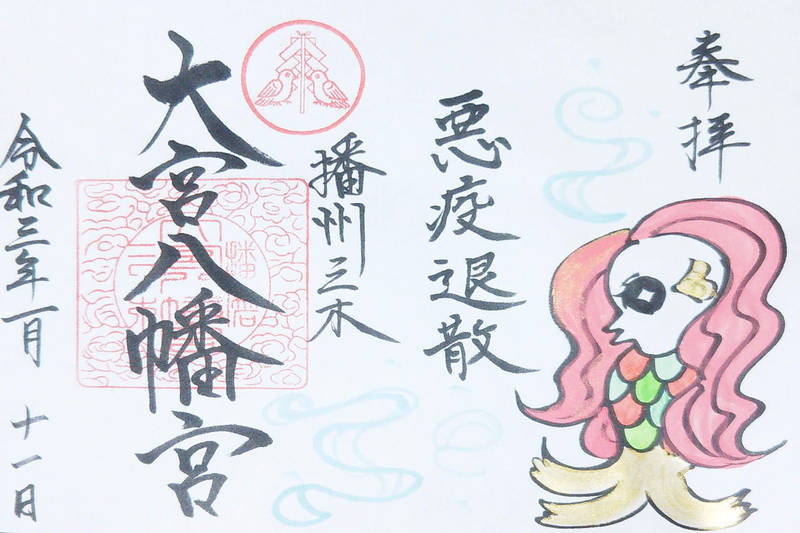 奉拝
悪疫退散
播州三木
大宮八幡宮
令和三年一月 十一日